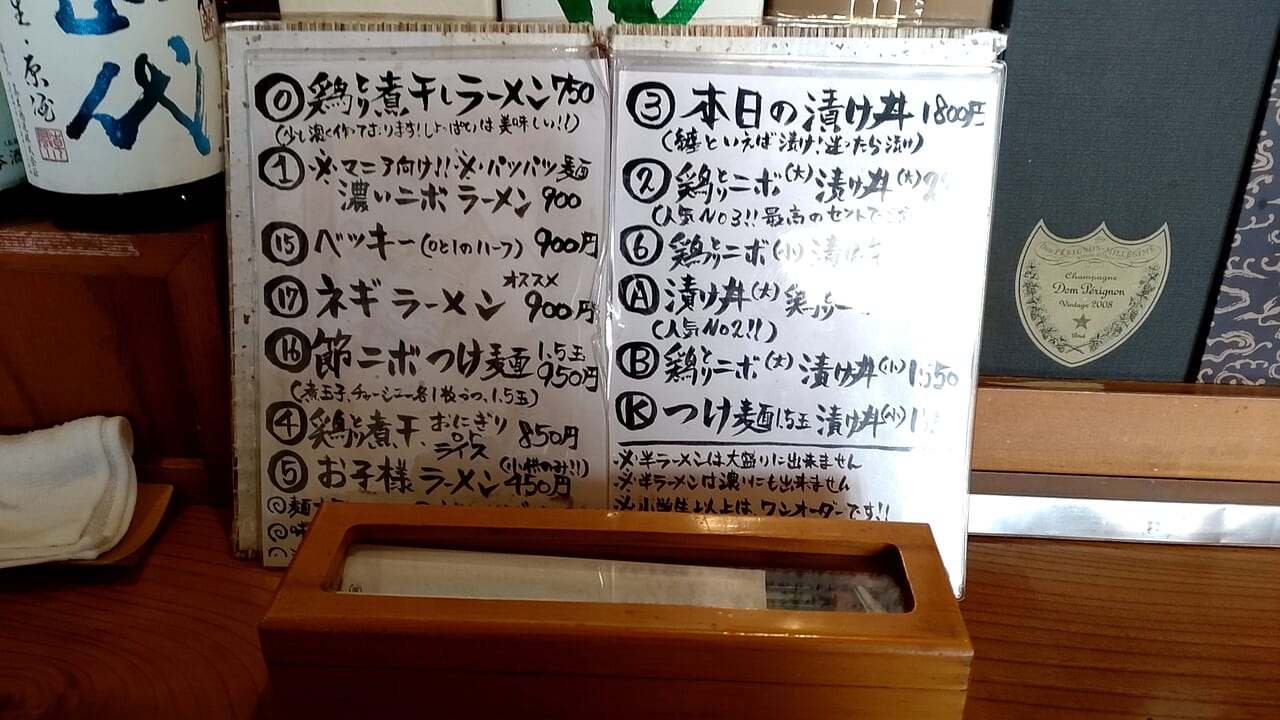 十四代
生
原酒
⓪ 鶏と煮干しラーメン 750
(少し濃く作っております!しょっぱいは美味しい!!)
① ※マニア向け!!※パッパツ麺
濃いニボラーメン 900
⑮ ベッキー(0と1のハーフ) 900円
オススメ
⑰ ネギラーメン 900円
⑯ 節ニボつけ麺 1.5玉 950円
(煮玉子、チャーシュー各1枚づつ、1.5玉)
④ 鶏と煮干、おにぎり or ライス 850円
⑤ お子様ラーメン (小供のみ!!) 450円
③ 本日の漬け丼 1800円
(といえば漬け!迷ったら漬け)
② 鶏とニボ(大)漬け丼(大)
(人気No3!!最高のセットで
⑥ 鶏とニボ(小)漬け
Ⓐ 漬け丼(大)
(人気No2!!)
Ⓑ 鶏とニボ(大)漬け丼(小)
Ⓚ つけ麺1.5玉 漬け丼(小)
※半ラーメンは大盛りに出来ません
※半ラーメンは濃いにも出来ません
※小学生以上は、ワンオーダーです!!
Champagne
Dom Pérignon
Vintage 2008